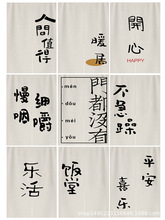 人間
值得
暖
居
開
心
HAPPY
慢
咽
細
嚼
mén
dōu
méi
yǒu
門都沒有
不
急
躁
乐
活
饭
堂
平
安
喜
乐